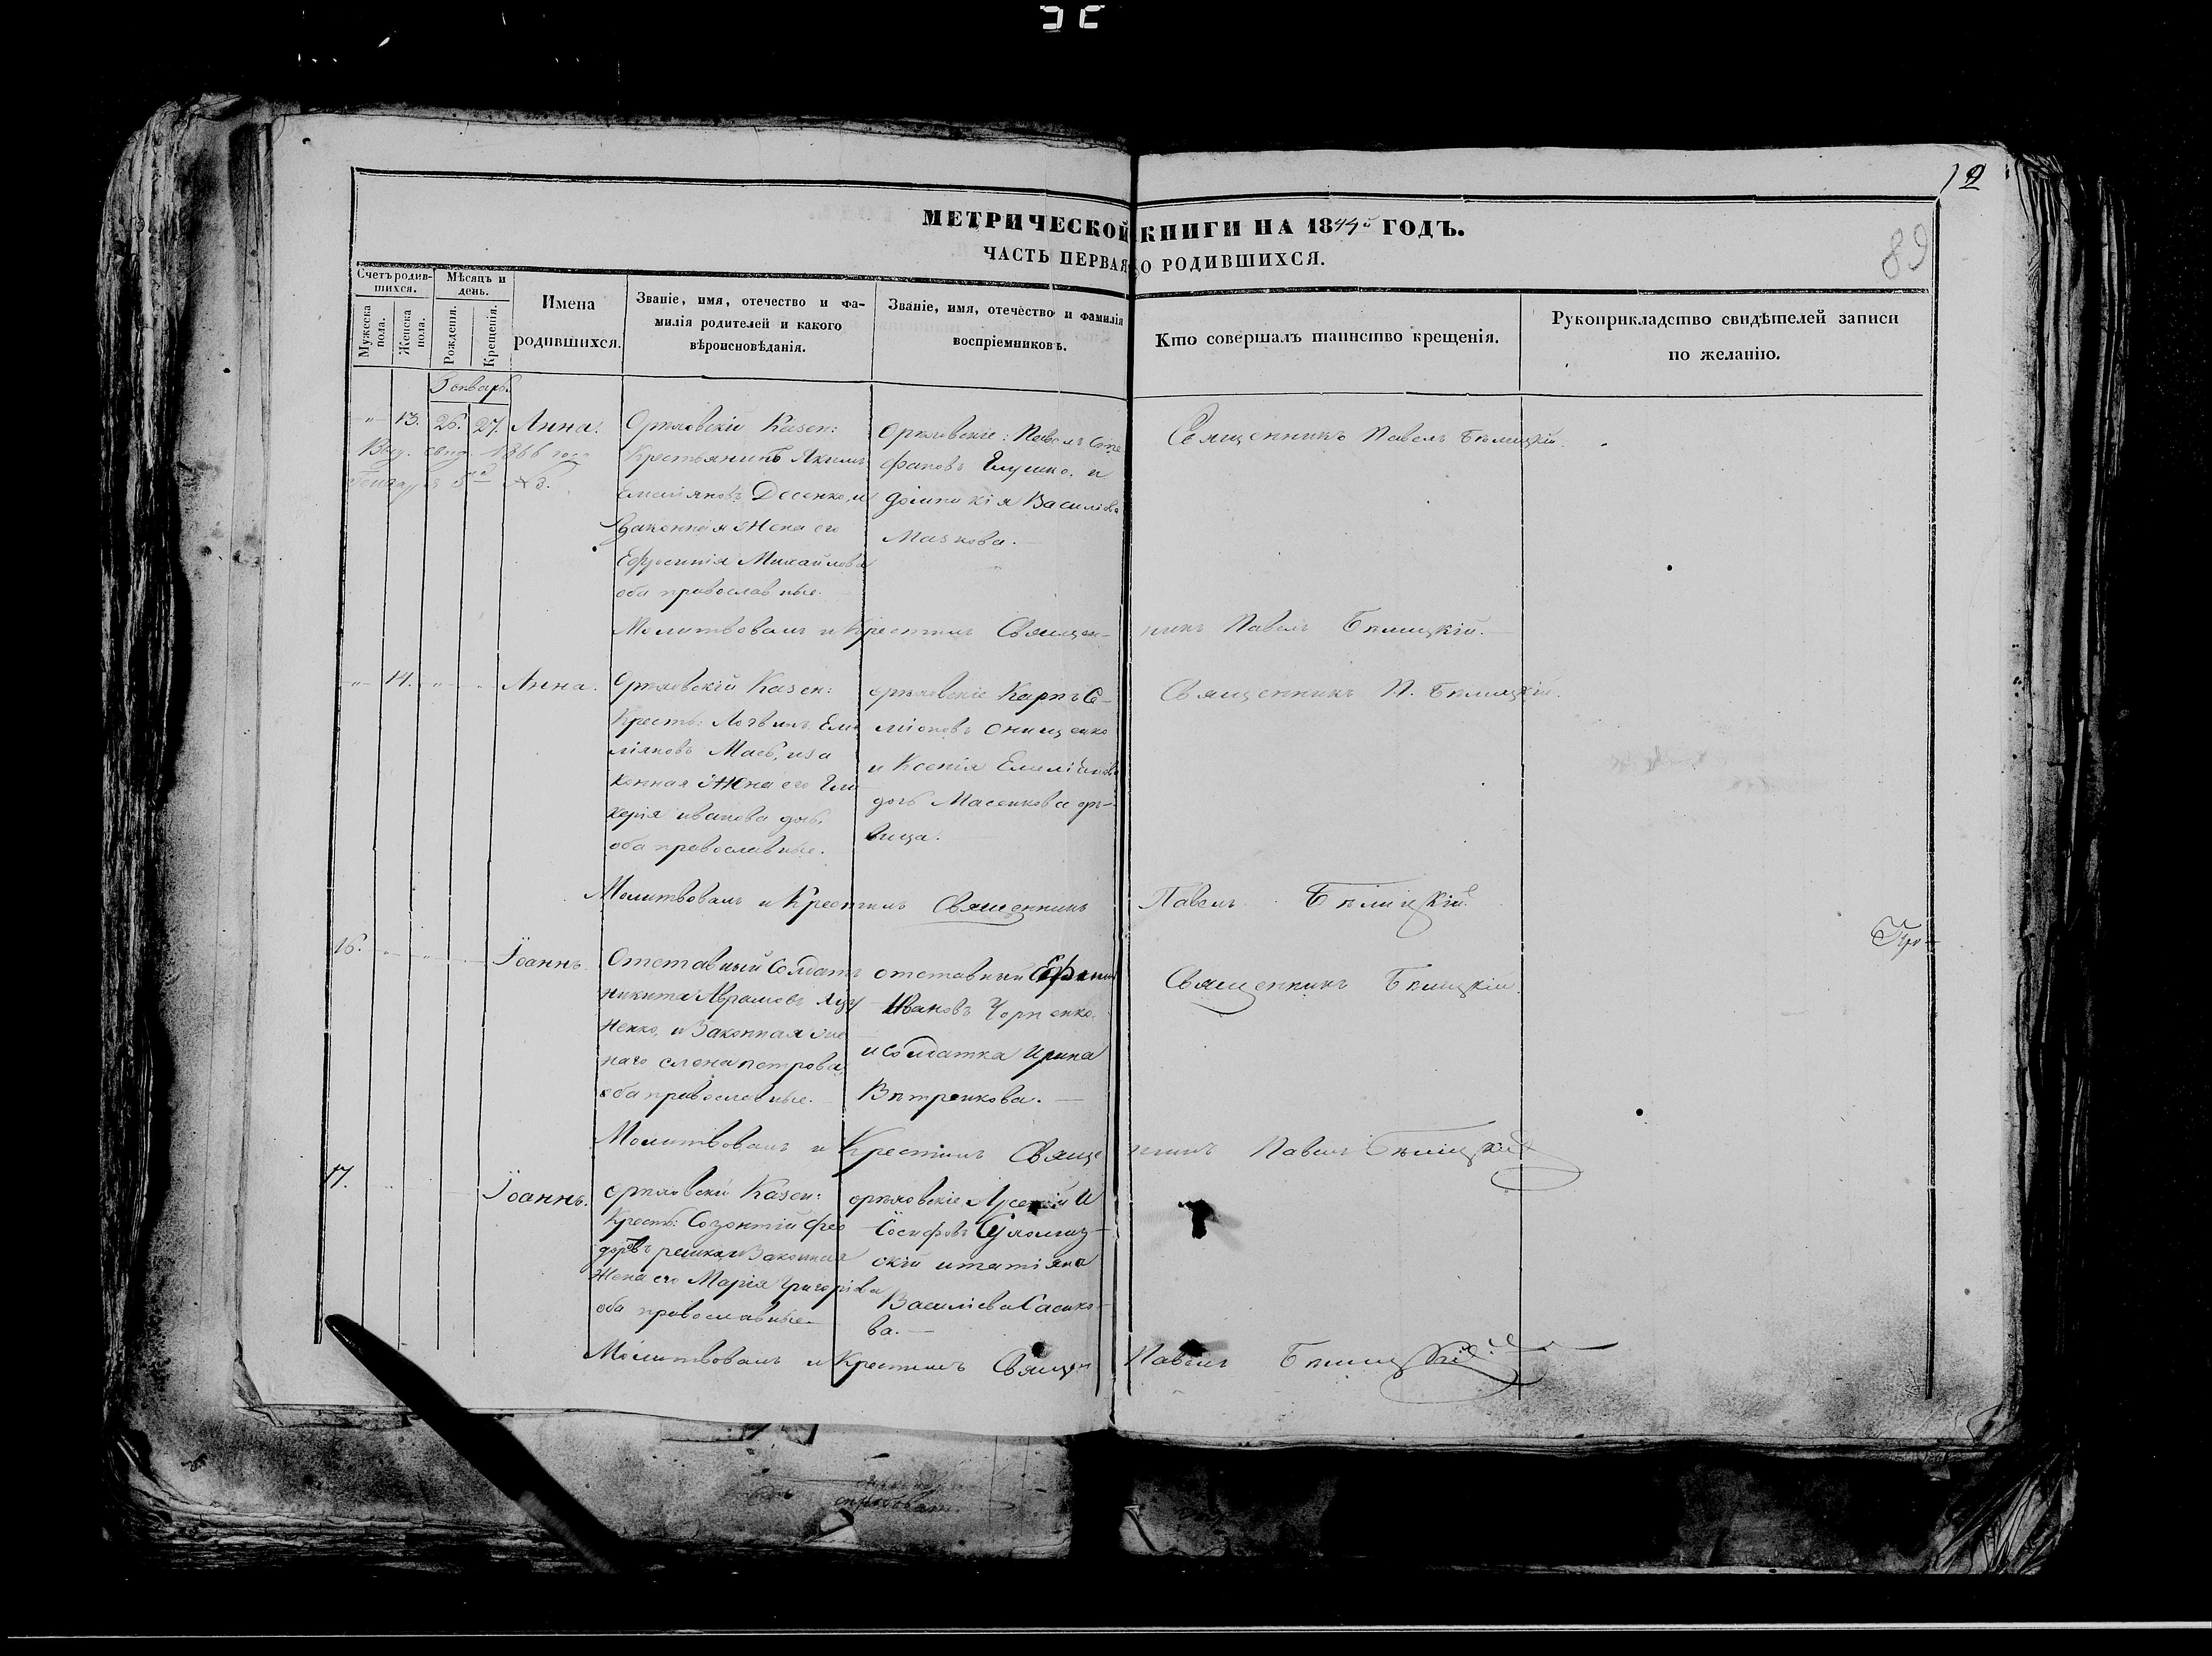 12
МЕТРИЧЕСКОЙ КНИГИ НА 1844й ГОДЪ.
89
ЧАСТЬ ПЕРВАЯ О РОДИВШИХСЯ.
Счетъ родив-
шихся.
Мужеска пола.
Женска пола.
Мѣсяцъ и
день.
Рожденія.
Крещенія.
Имена
родившихся.
Званіе, имя, отечество и фа-
милія родителей и какого
вѣроисповѣданія.
Званіе, имя, отечество и фамилія
воспріемниковъ.
Кто совершалъ таинство крещенія.
Рукоприкладство свидѣтелей записи
по желанію.
Январь
13. 26. 27. Анна.
1866 года
№ 3.
Орѣховскій Казен:
Крестьянинъ Якимъ
Емельяновъ Десенко, и
Законная Жена его
Ефросинія Михайлова
оба православные.
Орѣховскіе: Павелъ Сте
фановъ Глушко, и
Василіева
Мазкова.
Священникъ Павелъ Бѣлицкій
Молитвовалъ и Крестилъ Священ-
никъ Павелъ Бѣлицкій.
14. Анна.
Орѣховскій Казен:
Кресть: Логвинъ Еме
ліяновъ иза
конная Жена его Гли
керія иванова дочь.
оба православные.
орѣховскіе Карпъ Се-
міоновъ Онищенко
и Ксенія
дочь Масенкова дѣ-
вица.
Священникъ П. Бѣлицкій.
Молитвовалъ и Крестилъ Священникъ
Павелъ Бѣлицкій
16. Іоаннъ.
Отставный Солдатъ
никита Аврамовъ
ненко, и Законная же
на его елена петрова
оба православные.
отставный
Ивановъ Чорненко
и Солдатка Ирина
Вѣтренкова.
Священникъ Бѣлицкій
Молитвовалъ и Крестилъ Свяще
нникъ Павелъ Бѣлицкій
17. Іоаннъ.
орѣховскій Казен:
Кресть: Созонтій фео
доровъ Законная
Жена его Марія григоріева
оба православные
орѣховскіе Арсеній И
осифовъ
скій и татіяна
Василіева Сасико-
ва.
Молитвовалъ и Крестилъ Священ
Павелъ Бѣлицкій